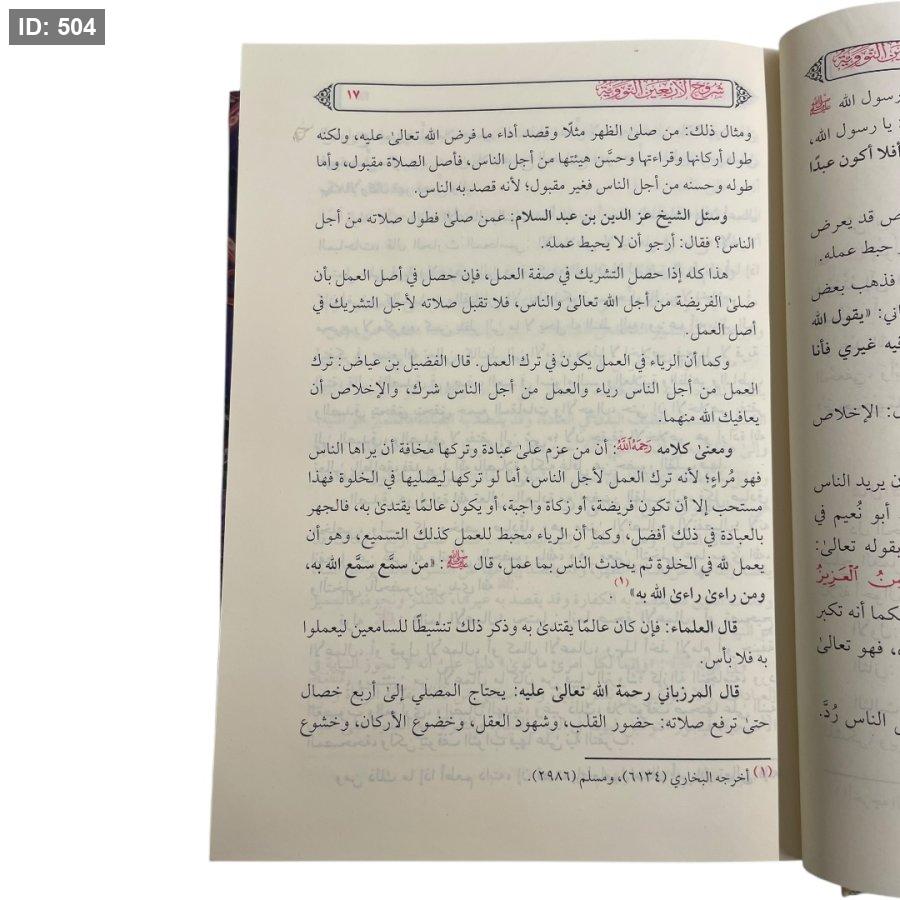 ID: 504
شروح الأربعين النووية
١٧
ومثال ذلك: من صلىٰ الظهر مثلًا وقصد أداء ما فرض الله تعالىٰ عليه، ولكنه
طول أركانها وقراءتها وحسَّن هيئتها من أجل الناس، فأصل الصلاة مقبول، وأما
طوله وحسنه من أجل الناس فغير مقبول؛ لأنه قصد به الناس.
وسئل الشيخ عز الدين بن عبد السلام: عمن صلىٰ فطول صلاته من أجل
الناس؟ فقال: أرجو أن لا يحبط عمله.
هذا كله إذا حصل التشريك في صفة العمل، فإن حصل في أصل العمل بأن
صلىٰ الفريضة من أجل الله تعالىٰ والناس، فلا تقبل صلاته لأجل التشريك في
أصل العمل.
وكما أن الرياء في العمل يكون في ترك العمل. قال الفضيل بن عياض: ترك
العمل من أجل الناس رياء والعمل من أجل الناس شرك، والإخلاص أن
يعافيك الله منهما.
ومعنىٰ كلامه رَحِمَهُ اللَّهُ: أن من عزم علىٰ عبادة وتركها مخافة أن يراها الناس
فهو مُراءٍ؛ لأنه ترك العمل لأجل الناس، أما لو تركها ليصليها في الخلوة فهذا
مستحب إلا أن تكون فريضة، أو زكاة واجبة، أو يكون عالمًا يقتدىٰ به، فالجهر
بالعبادة في ذلك أفضل، وكما أن الرياء محبط للعمل كذلك التسميع، وهو أن
يعمل لله في الخلوة ثم يحدث الناس بما عمل، قال ﷺ: «من سمَّع سمَّع الله به،
ومن راءىٰ راءىٰ الله به» (١).
قال العلماء: فإن كان عالمًا يقتدىٰ به وذكر ذلك تنشيطًا للسامعين ليعملوا
به فلا بأس.
قال المرزباني رحمة الله تعالىٰ عليه: يحتاج المصلي إلىٰ أربع خصال
حتىٰ ترفع صلاته: حضور القلب، وشهود العقل، وخضوع الأركان، وخشوع
(١) أخرجه البخاري (٦١٣٤)، ومسلم (٢٩٨٦).
رسول الله ﷺ
يا رسول الله،
أفلا أكون عبدًا
قد يعرض
حبط عمله.
فذهب بعض
«يقول الله
غيري فأنا
الإخلاص
يريد الناس
أبو نُعيم في
بقوله تعالىٰ:
الْعَزِيزُ
كما أنه تكبر
، فهو تعالىٰ
الناس رُدَّ.